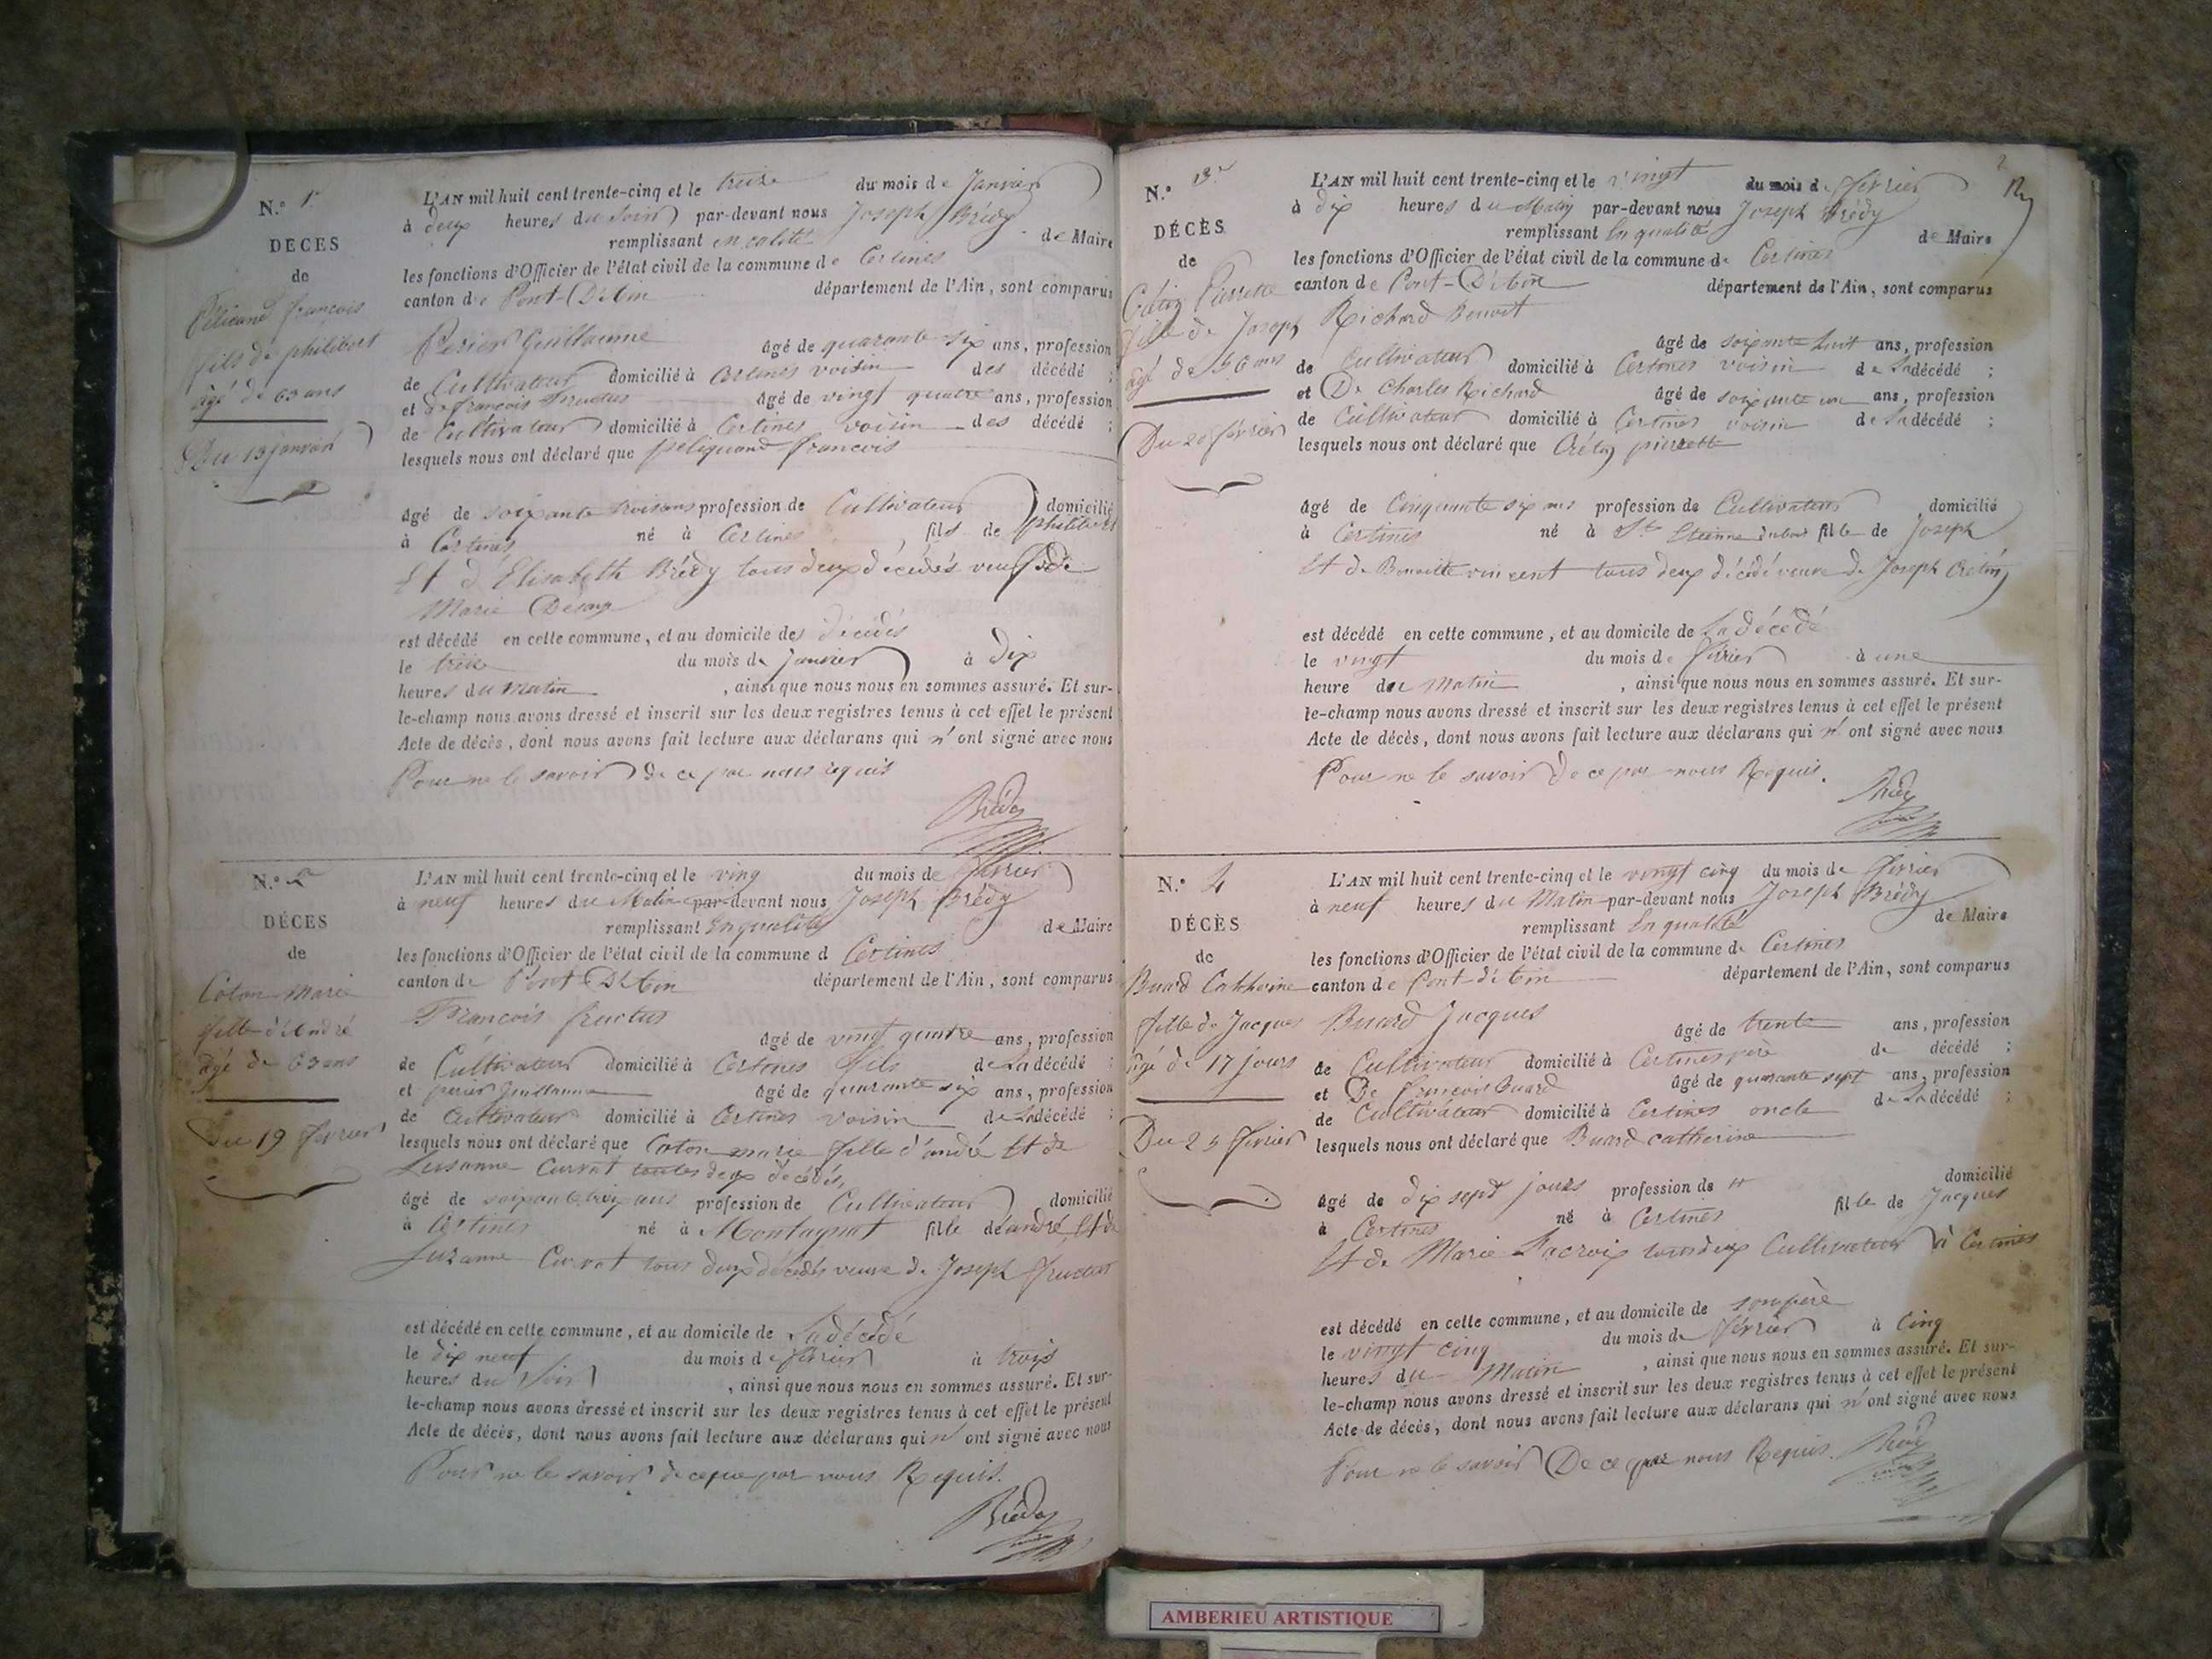 N.º 1er
DÉCES
de
Pélicand françois
fils de philibert
âgé de 63 ans
Du 13 janvier
L'AN mil huit cent trente-cinq et le treize du mois de Janvier
à deux heures du Soir par-devant nous Joseph Brédy
remplissant en calité de Maire
les fonctions d'Officier de l'état civil de la commune de Certines
canton de Pont-D'Ain département de l'Ain, sont comparus
Perier Guillaume
âgé de quarante six ans, profession
de Cultivateur domicilié à Certines voisin des décédé ;
et de françois fructus âgé de vingt quatre ans, profession
de Cultivateur domicilié à Certines voisin des décédé ;
lesquels nous ont déclaré que peliquand francois
âgé de soixante trois ans profession de Cultivateur domicilié
à Certines né à Certines fils de philibert
Et d'Elisabeth Brédy tous deux décédés veuf de
Marie
est décédé en cette commune, et au domicile des décédés
le treize du mois de Janvier à dix
heures du Matin, ainsi que nous nous en sommes assuré. Et sur-
le-champ nous avons dressé et inscrit sur les deux registres tenus à cet effet le présent
Acte de décès, dont nous avons fait lecture aux déclarans qui n'ont signé avec nous
Pour ne le savoir de ce par nous requis
Brédy
N.º 2
DÉCES
de
Coton Marie
fille d'André
âgé de 63 ans
Du 19 février
L'AN mil huit cent trente-cinq et le ving du mois de février
à neuf heures du Matin par-devant nous Joseph Brédy
remplissant En qualité de Maire
les fonctions d'Officier de l'état civil de la commune d Certines
canton de Pont D'Ain département de l'Ain, sont comparus
François fructus
âgé de vingt quatre ans, profession
de Cultivateur domicilié à Certines fils de La décédé ;
et perier Guillaume âgé de quarante six ans, profession
de Cultivateur domicilié à Certines voisin de La décédé ;
lesquels nous ont déclaré que Coton marie fille d'andré Et de
Susanne Curvat toutes deux décédés,
âgé de soixante troix ans profession de Cultivateur domicilié
à Certines né à Montagnat fille de andré Et de
Suzanne Curvat tous deux décédés veuve de Joseph fructus
est décédé en cette commune, et au domicile de La décédé
le dix neuf du mois de février à trois
heures du Soir, ainsi que nous nous en sommes assuré. Et sur-
le-champ nous avons dressé et inscrit sur les deux registres tenus à cet effet le présent
Acte de décès, dont nous avons fait lecture aux déclarans qui n'ont signé avec nous
Pour ne le savoir de ce que par nous Requis.
Brédy
2
N.º 3
DÉCÈS
de
Crétin Pierrette
fille de Joseph
âgé de 56 ans
Du 20 février
L'AN mil huit cent trente-cinq et le vingt du mois de février
à dix heures du Matin par-devant nous Joseph Brédy
remplissant En qualité de Maire
les fonctions d'Officier de l'état civil de la commune de Certines
canton de Pont-D'Ain département de l'Ain, sont comparus
Richard Benoit
âgé de soixante huit ans, profession
de Cultivateur domicilié à Certines voisin de La décédé ;
et De Charles Richard âgé de soixante un ans, profession
de Cultivateur domicilié à Certines voisin de La décédé ;
lesquels nous ont déclaré que Crétin pierrette
âgé de Cinquante six ans profession de Cultivateur domicilié
à Certines né à St Etienne dubois fille de Joseph
Et de Benoitte vincent tous deux décédé veuve de Joseph Crétin
est décédé en cette commune, et au domicile de La décédé
le vingt du mois de février à une
heure du Matin, ainsi que nous nous en sommes assuré. Et sur-
le-champ nous avons dressé et inscrit sur les deux registres tenus à cet effet le présent
Acte de décès, dont nous avons fait lecture aux déclarans qui n'ont signé avec nous
Pour ne le savoir De ce par nous Requis.
Brédy
N.º 4
DÉCÈS
de
Buard Catherine
fille de Jacques
âgé de 17 jours
Du 25 février
L'AN mil huit cent trente-cinq et le vingt cinq du mois de février
à neuf heures du Matin par-devant nous Joseph Brédy
remplissant En qualité de Maire
les fonctions d'Officier de l'état civil de la commune de Certines
canton de Pont-d'Ain département de l'Ain, sont comparus
Buard Jacques
âgé de trente ans, profession
de Cultivateur domicilié à Certines père de décédé ;
et De françois Buard âgé de quarante sept ans, profession
de Cultivateur domicilié à Certines oncle de La décédé ;
lesquels nous ont déclaré que Buard catherine
âgé de dix sept jours profession de domicilié
à Certines né à Certines fille de Jacques
Et de Marie Lacroix tous deux Cultivateur à Certines
est décédé en cette commune, et au domicile de son père
le vingt cinq du mois de février à Cinq
heures du Matin, ainsi que nous nous en sommes assuré. Et sur-
le-champ nous avons dressé et inscrit sur les deux registres tenus à cet effet le présent
Acte de décès, dont nous avons fait lecture aux déclarans qui n'ont signé avec nous
Pour ne le savoir De ce par nous Requis.
Brédy
AMBERIEU ARTISTIQUE